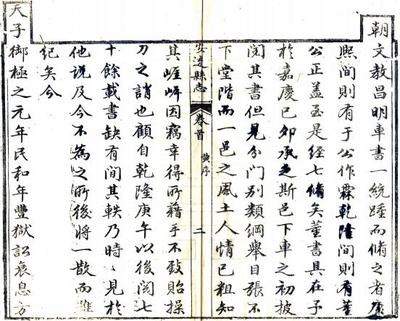 朝文教昌明車書一統踵而脩之者康
熙間則有于公作霖乾隆間則有董
公正盖至是經七脩矣董書具在予
於嘉慶己卯承乏斯邑下車之初披
閱其書但見分門別類綱舉目張不
下堂階而一邑之風土人情已粗知
安遠縣志 卷首 黄序 二
其崕畔因竊幸得所藉手不致貽操
刀之誚也顧自乾隆庚午以後閱七
十餘載書缺有間其軼乃時〻見於
他說及今不為之所後將一散而難
紀矣今
天子御極之元年民和年豐獄訟衰息方